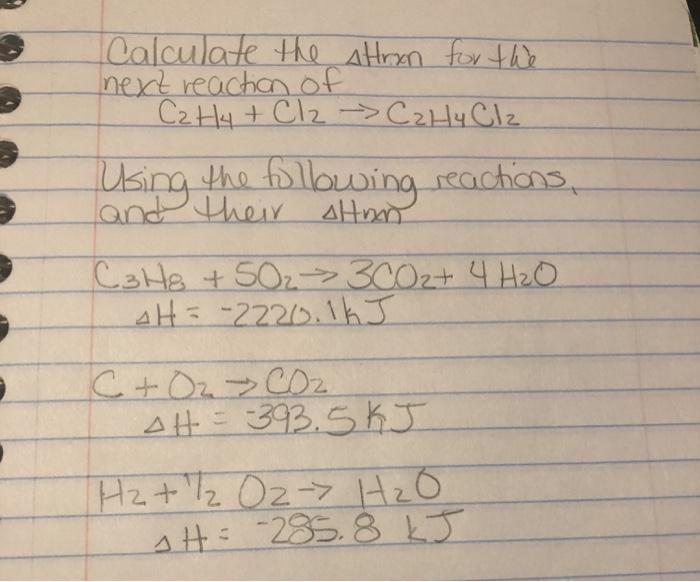 Calculate the ΔHrxn for the
next reaction of
C2H4 + Cl2 → C2H4Cl2
Using the following reactions,
and their ΔHrxn
C3H8 + 5O2 → 3CO2 + 4 H2O
ΔH = -2220.1kJ
C + O2 → CO2
ΔH = -393.5 KJ
H2 + 1/2 O2 → H2O
ΔH = -285.8 kJ